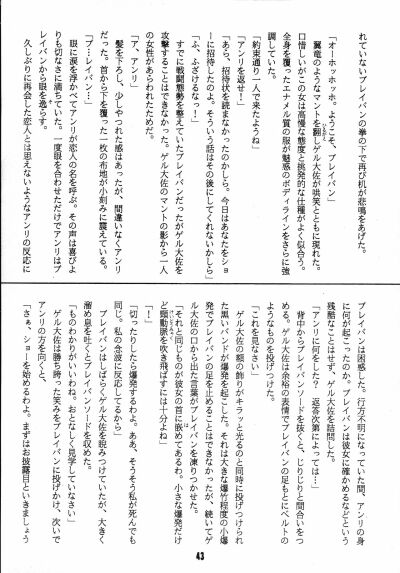 れていないブレイバンの拳の下で再び机が悲鳴をあげた。
「オーホッホッホ。ようこそ、ブレイバン」
翼竜のようなマントを翻しゲル大佐が哄笑とともに現れた。
口惜しいがこの女は高慢な態度と挑発的な仕種がよく似合う。
全身を覆ったエナメル質の服が魅惑のボディラインをさらに強
調していた。
「約束通り一人で来たようね」
「アンリを返せ！」
「あら、招待状を読まなかったのかしら。今日はあなたをショ
ーに招待したのよ。そういう話はその後にしてくれないかしら」
「ふ、ふざけるなっ！」
すでに戦闘態勢を整えていたブレイバンだったがゲル大佐を
攻撃することはできなかった。ゲル大佐のマントの影から一人
の女性があらわれたためだ。
「ア、アンリ」
髪を下ろし、少しやつれた感はあったが、間違いなくアンリ
だった。首から下を覆った一枚の布地が小刻みに震えている。
「ブ…レイバン…」
眼に涙を浮かべてアンリが恋人の名を呼ぶ。その声は喜びよ
りも切なさに満ちていた。一度眼を合わせただけでアンリはブ
レイバンから眼を逸らす。
久しぶりに再会した恋人とは思えないようなアンリの反応に
ブレイバンは困惑した。行方不明になっていた間、アンリの身
に何が起こったのか。ブレイバンは彼女に確かめるなどという
残酷なことはせず、ゲル大佐を詰問した。
「アンリに何をした？　返答次第によっては…」
背中からブレイバンソードを抜くと、じりじりと間合いをつ
める。ゲル大佐は余裕の表情でブレイバンの足もとにベルトの
ようなものを投げつけた。
「これを見なさい」
ゲル大佐の額の飾りがキラッと光るのと同時に投げつけられ
た黒いバンドが爆発を起こした。それは大きな爆竹程度の小爆
発でブレイバンの足を止めることはできなかったが、続いてゲ
ル大佐の口から出た言葉がブレイバンを凍りつかせた。
「それと同じものが彼女の首に嵌めてあるわ。小さな爆発だけ
ど頸動脈を吹き飛ばすには十分よね」
「！」
「切ったりしたら爆発するわよ。ああ、そうそう私が死んでも
同じ。私の念波に反応してるから」
ブレイバンはしばらくゲル大佐を睨みつけていたが、大きく
溜め息を吐くとブレイバンソードを収めた。
「ものわかりがいいわね。おとなしく見学していなさい」
ゲル大佐は勝ち誇った笑みをブレイバンに投げかけ、次いで
アンリの方を向くと、
「さぁ、ショーを始めるわよ。まずはお披露目といきましょう
43